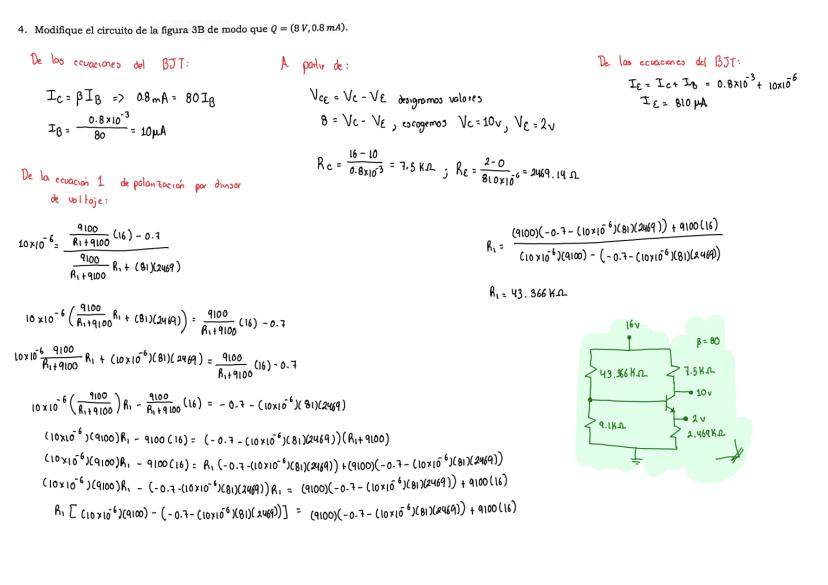 4. Modifique el circuito de la figura 3B de modo que Q = (8 V, 0.8 mA).
De las ecuaciones del BJT:
I_C = βI_B => 0.8mA = 80I_B
I_B = 0.8×10^-3 / 80 = 10μA
A partir de:
V_CE = V_C - V_E designamos valores
8 = V_C - V_E, escogemos V_C = 10v, V_E = 2v
R_C = 16-10 / 0.8×10^-3 = 7.5 KΩ ; R_E = 2-0 / 810×10^-6 = 2469.14 Ω
De las ecuaciones del BJT:
I_E = I_C + I_B = 0.8×10^-3 + 10×10^-6
I_E = 810 μA
De la ecuación 1 de polarización por divisor
de voltaje:
10×10^-6 = (9100/(R_1+9100) (16) - 0.7) / (9100/(R_1+9100) R_1 + (81)(2469))
10×10^-6 (9100/(R_1+9100) R_1 + (81)(2469)) = 9100/(R_1+9100) (16) - 0.7
10×10^-6 9100/(R_1+9100) R_1 + (10×10^-6)(81)(2469) = 9100/(R_1+9100) (16) - 0.7
10×10^-6 (9100/(R_1+9100)) R_1 - 9100/(R_1+9100) (16) = -0.7 - (10×10^-6)(81)(2469)
(10×10^-6)(9100)R_1 - 9100(16) = (-0.7 - (10×10^-6)(81)(2469))(R_1+9100)
(10×10^-6)(9100)R_1 - 9100(16) = R_1(-0.7-(10×10^-6)(81)(2469)) + (9100)(-0.7-(10×10^-6)(81)(2469))
(10×10^-6)(9100)R_1 - (-0.7-(10×10^-6)(81)(2469))R_1 = (9100)(-0.7-(10×10^-6)(81)(2469)) + 9100(16)
R_1 [(10×10^-6)(9100) - (-0.7-(10×10^-6)(81)(2469))] = (9100)(-0.7-(10×10^-6)(81)(2469)) + 9100(16)
R_1 = ((9100)(-0.7-(10×10^-6)(81)(2469)) + 9100(16)) / ((10×10^-6)(9100) - (-0.7-(10×10^-6)(81)(2469)))
R_1 = 43.366 KΩ
16v
β = 80
43.366KΩ
7.5KΩ
10v
2v
9.1KΩ
2.469KΩ